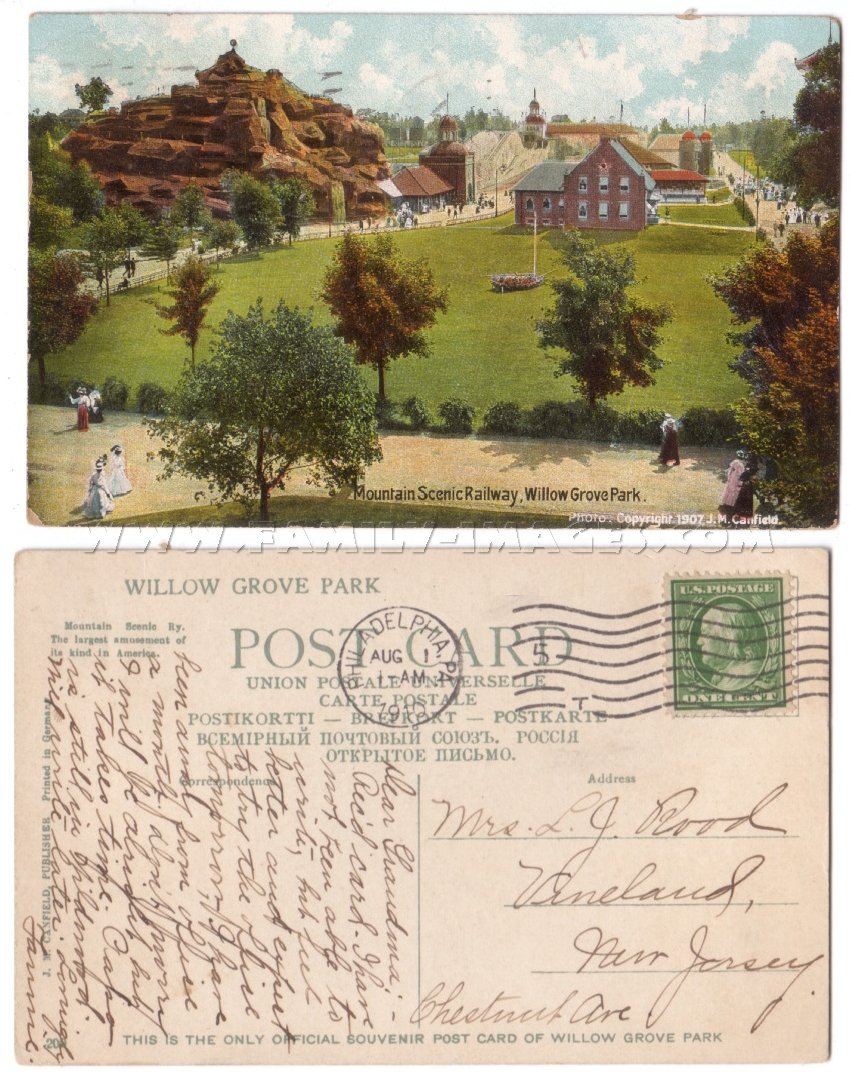 Mountain Scenic Railway, Willow Grove Park.
Photo: Copyright 1907 J. M. Canfield.
WWW.FAMILY-IMAGES.COM
WILLOW GROVE PARK
Mountain Scenic Ry.
The largest amusement of
its kind in America.
POST CARD
UNION POSTALE UNIVERSELLE
CARTE POSTALE
POSTIKORTTI — BREFKORT — POSTKARTE
ВСЕМІРНЫЙ ПОЧТОВЫЙ СОЮЗЪ. РОССІЯ
ОТКРЫТОЕ ПИСЬМО.
PHILADELPHIA, PA.
AUG 1
1-AM
5
T
U.S. POSTAGE
ONE CENT
Correspondence
Address
Dear Grandma:-
Rec'd card. I have
not been able to
write, but feel
better and expect
to try the office
tomorrow. I have
been away from office
a month, don't worry
I will be alright, but
it takes time. Capt
is still in
will write later. Lovingly
Fannie.
Mrs. L. J. Rood
Vineland,
New Jersey
Chestnut Ave.
J. M. CANFIELD, PUBLISHER Printed in Germany
THIS IS THE ONLY OFFICIAL SOUVENIR POST CARD OF WILLOW GROVE PARK